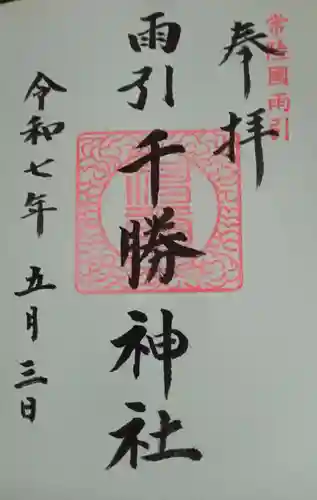 常陸國雨引
奉拝
雨引千勝神社
令和七年 五月三日